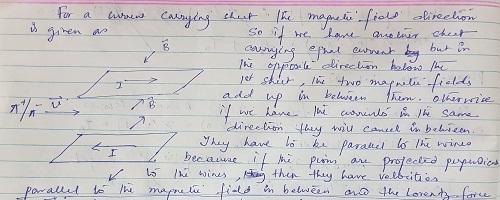 For a current carrying sheet the magnetic field direction
is given as
B
I
So if we have another sheet
carrying equal current but in
the opposite direction below the
1st sheet the two magnetic fields
add up in between them. Otherwise
if we have the currents in the same
direction they will cancel in between.
π+/π- v
B
I
They have to be parallel to the wires
because if the pions are projected perpendi
to the wires, then they have velocities
parallel to the magnetic field in between and the Lorentz force